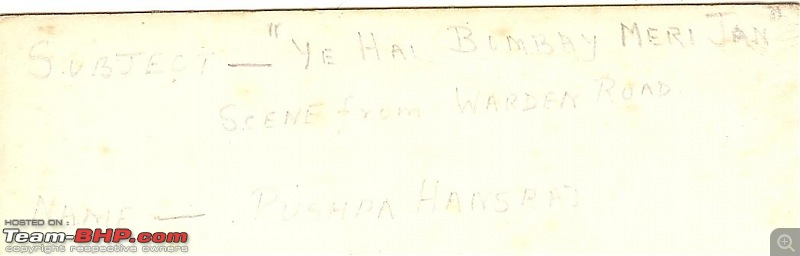 SUBJECT — "YE HAI BOMBAY MERI JAN"
SCENE from WARDEN ROAD
NAME — PUSHPA HANSRAJ
HOSTED ON :
Team-BHP.com
copyright respective owners